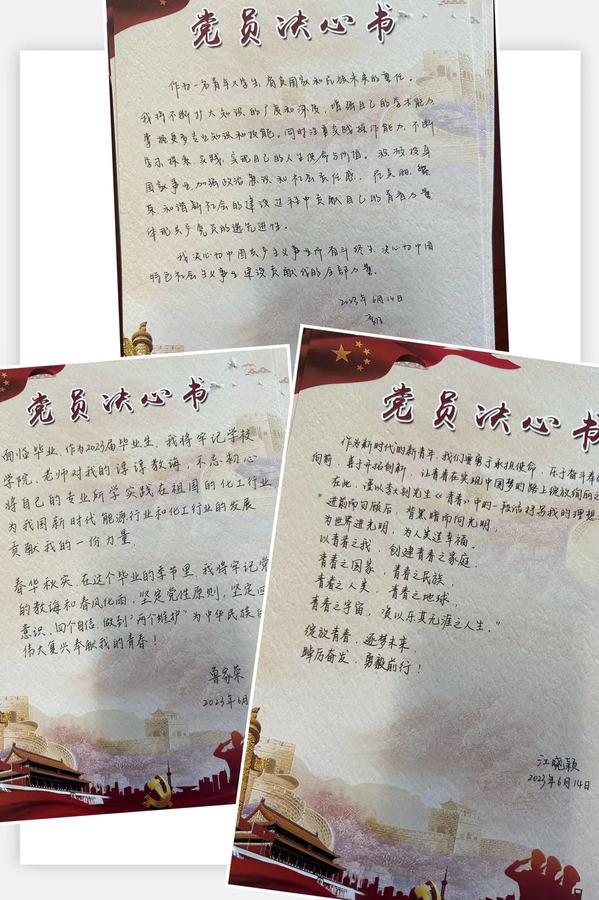 党员决心书
作为一名青年大学生，肩负国家和民族未来的责任。
我将不断扩大知识的广度和深度，增强自己的学术能力，
掌握更多专业知识和技能。同时注重实践操作能力，不断
学习探索、实践，实现自己的人生使命与价值。积极投身
国家事业，加强政治意识和社会责任感，在美丽、繁
荣、和谐新社会的建设过程中贡献自己的青春力量
体现共产党员的先进性。
我决心为中国共产主义事业所奋斗终生，决心为中国
特色社会主义事业建设贡献我的全部力量。
2023年6月14日
党员决心书
面临毕业，作为2023届毕业生，我将牢记学校
学院、老师对我的谆谆教诲，不忘初心
将自己的专业所学实践在祖国的化工行业
为我国新时代能源行业和化工行业的发展
贡献我的一份力量.
春华秋实，在这个毕业的季节里，我将牢记党
的教诲和春风化雨，坚定党性原则，坚定四
意识，四个自信，做到“两个维护”为中华民族的
伟大复兴奉献我的青春！
鲁家荣
2023年6月
党员决心书
作为新时代的新青年，我们要勇于承担使命，在于奋斗奉
向前，善于开拓创新，让青春在实现中国梦的路上绽放绚丽之
在此，谨以李大钊先生《青春》中的一段话抒写我的理想
“进前而勿顾后，背黑暗而向光明，
为世界进光明，为人类造幸福，
以青春之我，创建青春之家庭，
青春之国家，青春之民族，
青春之人类，青春之地球，
青春之宇宙，资以乐其无涯之人生。”
绽放青春，逐梦未来，
踔厉奋发，勇毅前行！
江晓颖
2023年6月14日